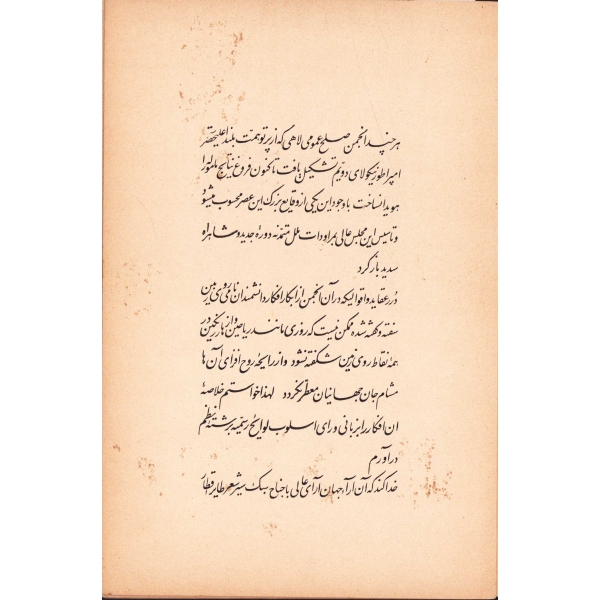 هر چند انجمن صلح عمومی لاهی که از پرتو همت بلند اعلیحضرت
امپراطور نیکولای دویم تشکیل یافت تاکنون فروغ نتایج مامول را
هویدا نساخت باوجود این یکی از وقایع بزرگ این عصر محسوب میشود
و تاسیس این مجلس عالی بمراودات ملل متمدنه دورهٔ جدید و شاهراه
سدید باز کرد
درر عقاید و اقوالیکه در آن انجمن از ابکار افکار دانشمندان نامی روی زمین
سفته و گفته شده ممکن نیست که روزی مانند ریاحین و ازهار رنگین در
همهٔ نقاط روی زمین شکفته نشود و از رایحهٔ روح افزای آن ها
مشام جان جهانیان معطر نگردد لهذا خواستم خلاصهٔ
ان افکار را بزبانی ورای اسلوب لوایح رسمیه برشتهٔ نظم
در آورم
خدا کند که آن آراء جهان آرای عالی با جناح سبک سیر شعر طایر اقطار